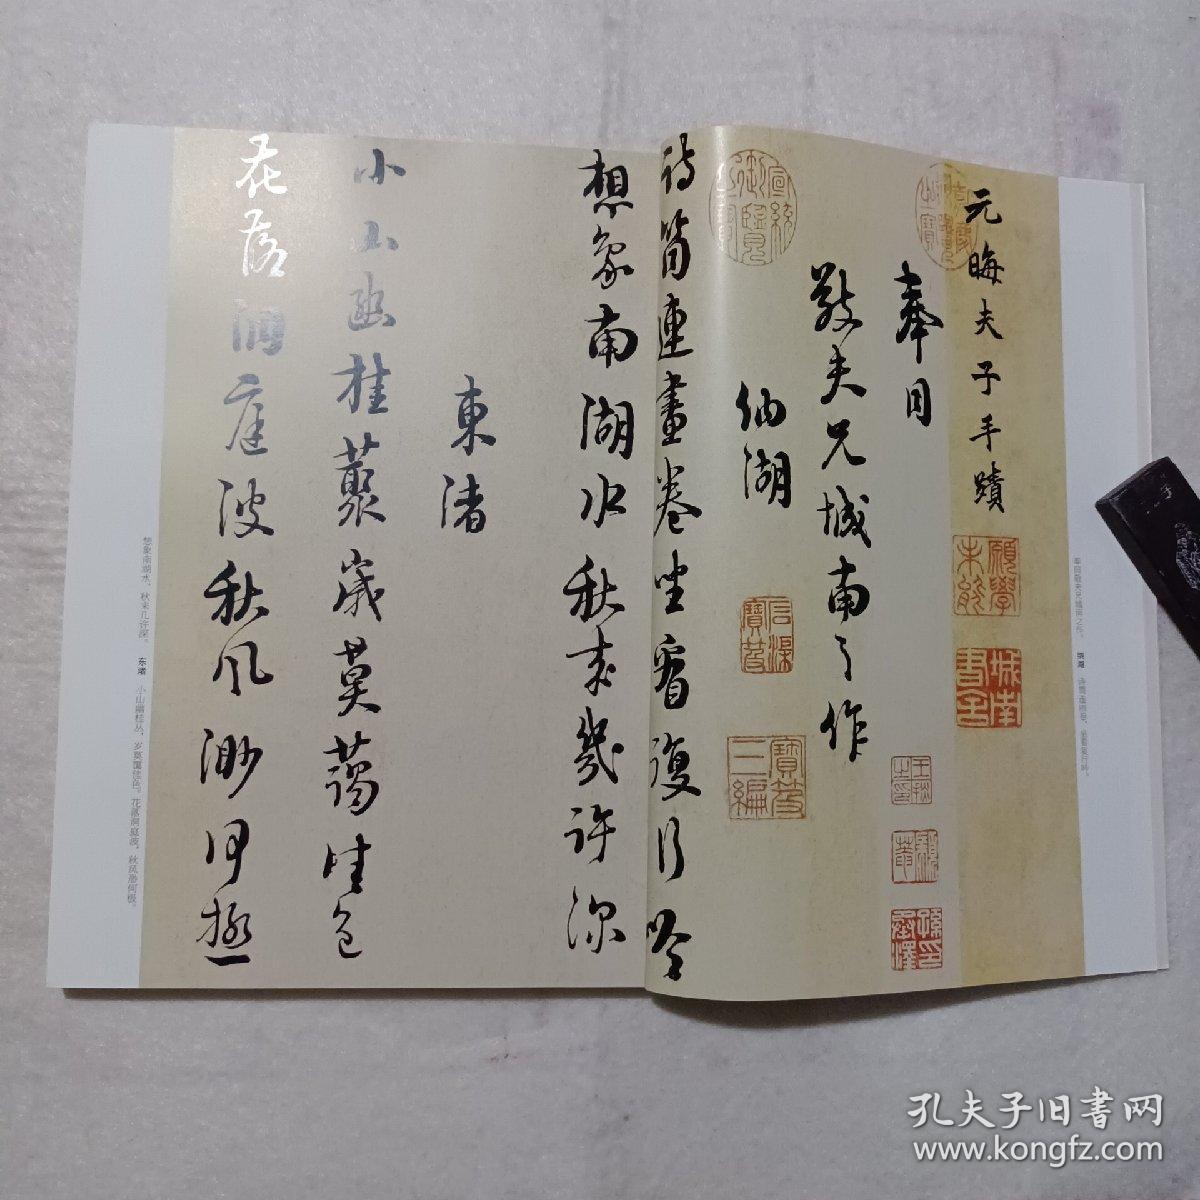 元晦夫子手蹟
奉同
敬夫兄城南之作
納湖
詩筒連畫卷坐看復行吟
想象南湖水秋来幾許深
東渚
小山幽桂叢歲莫藹佳色
花落洞庭波秋风渺何極
宣統
御覽
之寶
願學
未能
城南
書舍
寶笈
三編
想象南湖水,秋来几许深。 东渚 小山幽桂丛,岁莫蔼佳色。花落洞庭波,秋风渺何极。
奉同敬夫兄城南之作。 纳湖 诗筒连画卷,坐看复行吟。
孔夫子旧书网
www.kongfz.com